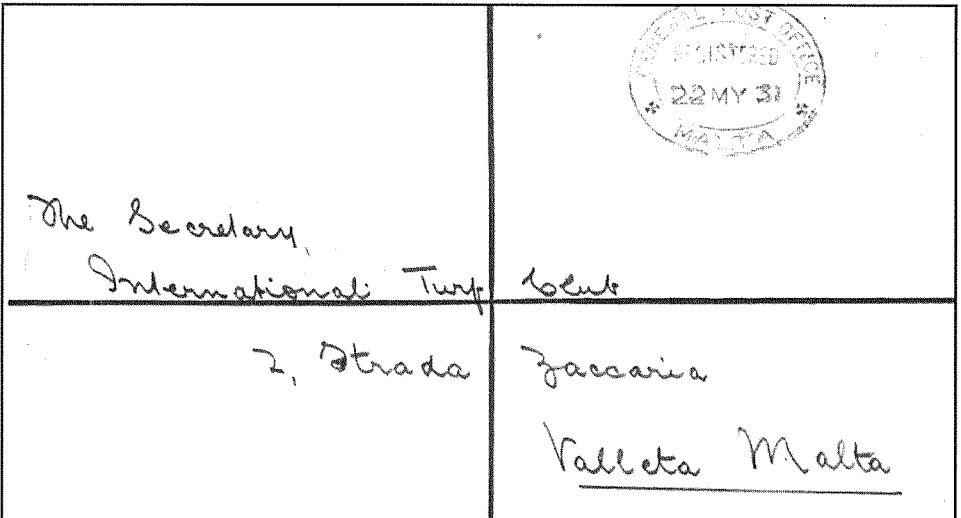 GENERAL POST OFFICE
REGISTERED
22 MY 31
MALTA
The Secretary,
International Turf Club
2, Strada Zaccaria
Valleta Malta